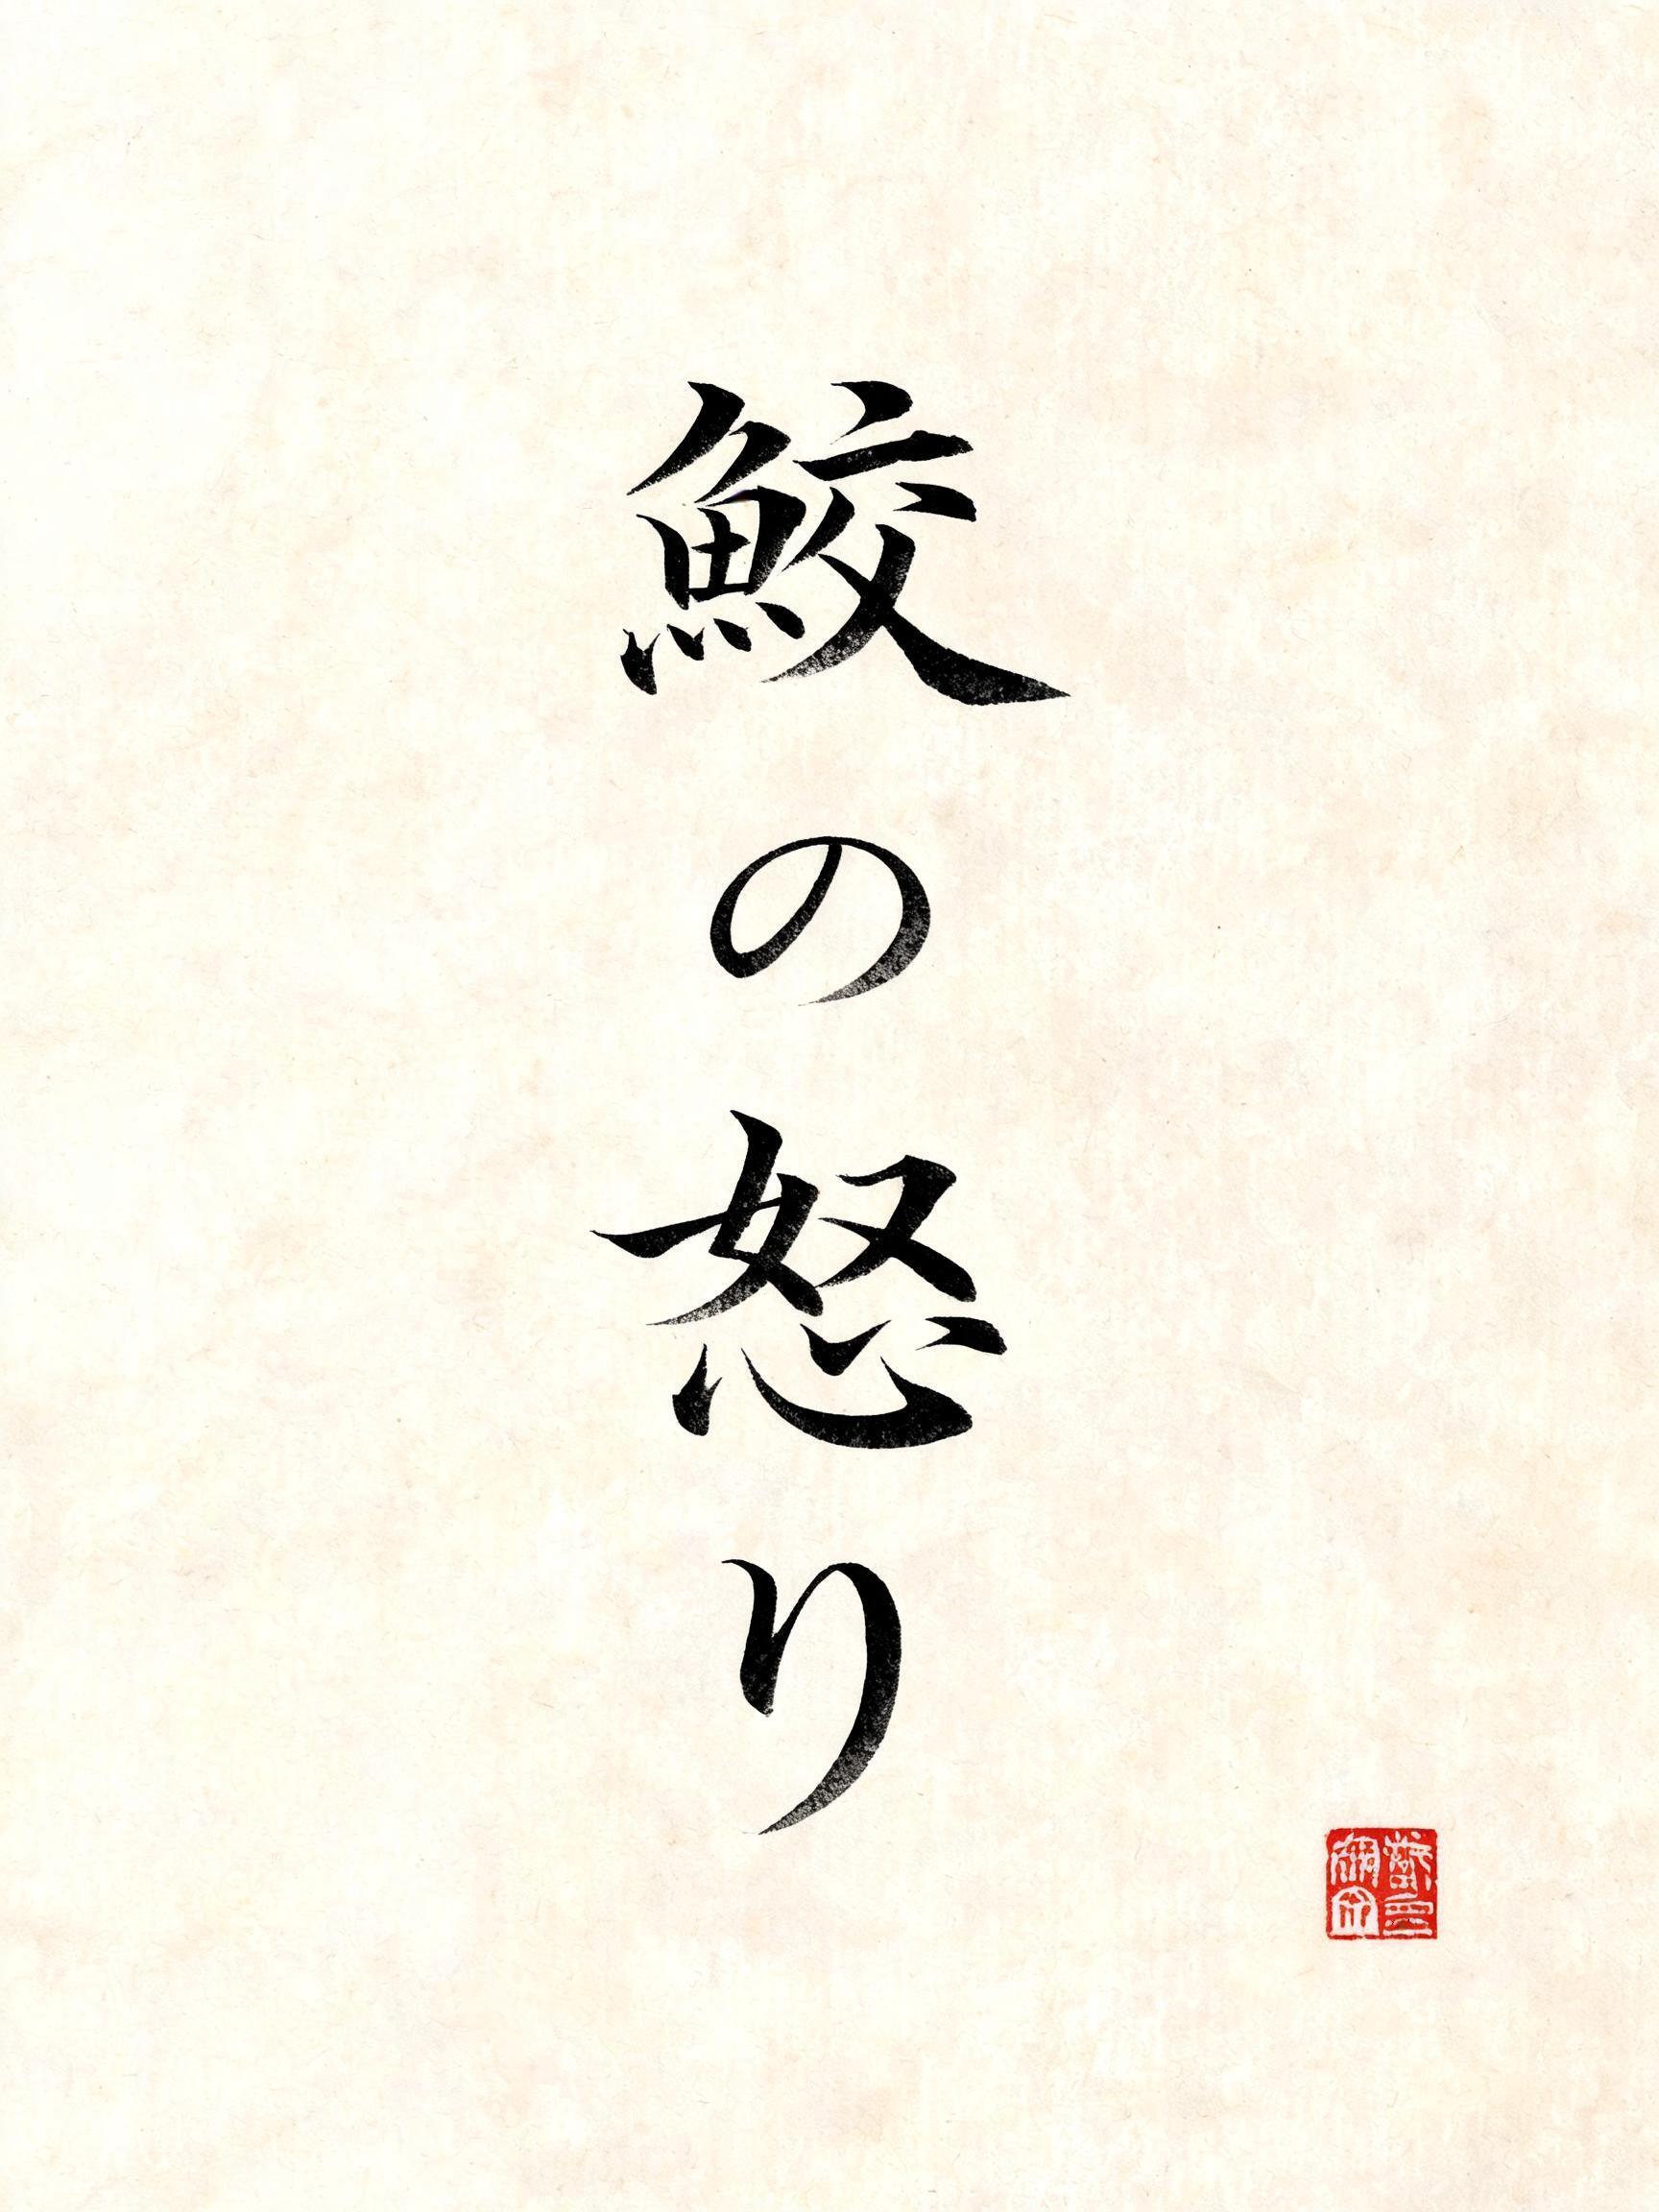 鮫の怒り